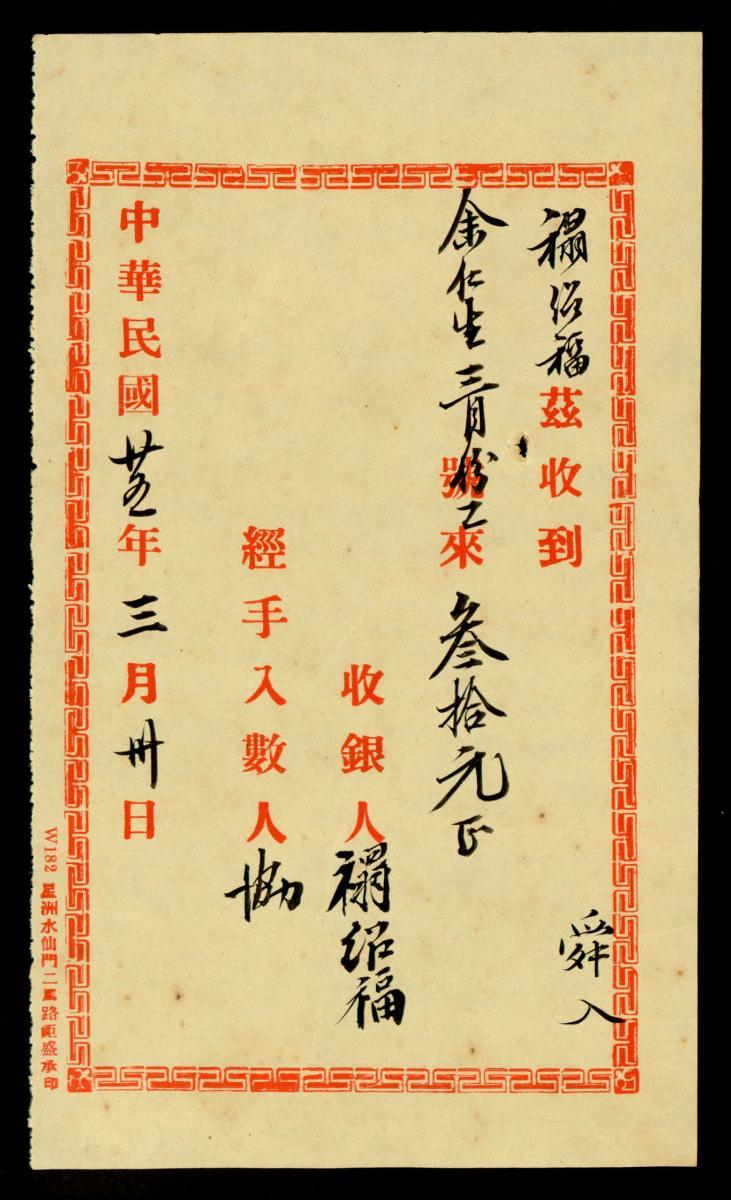 禤紹福茲收到
余仁生三月份工號來叁拾元正
收銀人禤紹福
經手入數人協
中華民國廿五年三月卅日
舜入
W182 星洲水仙門二馬路鉅盛承印